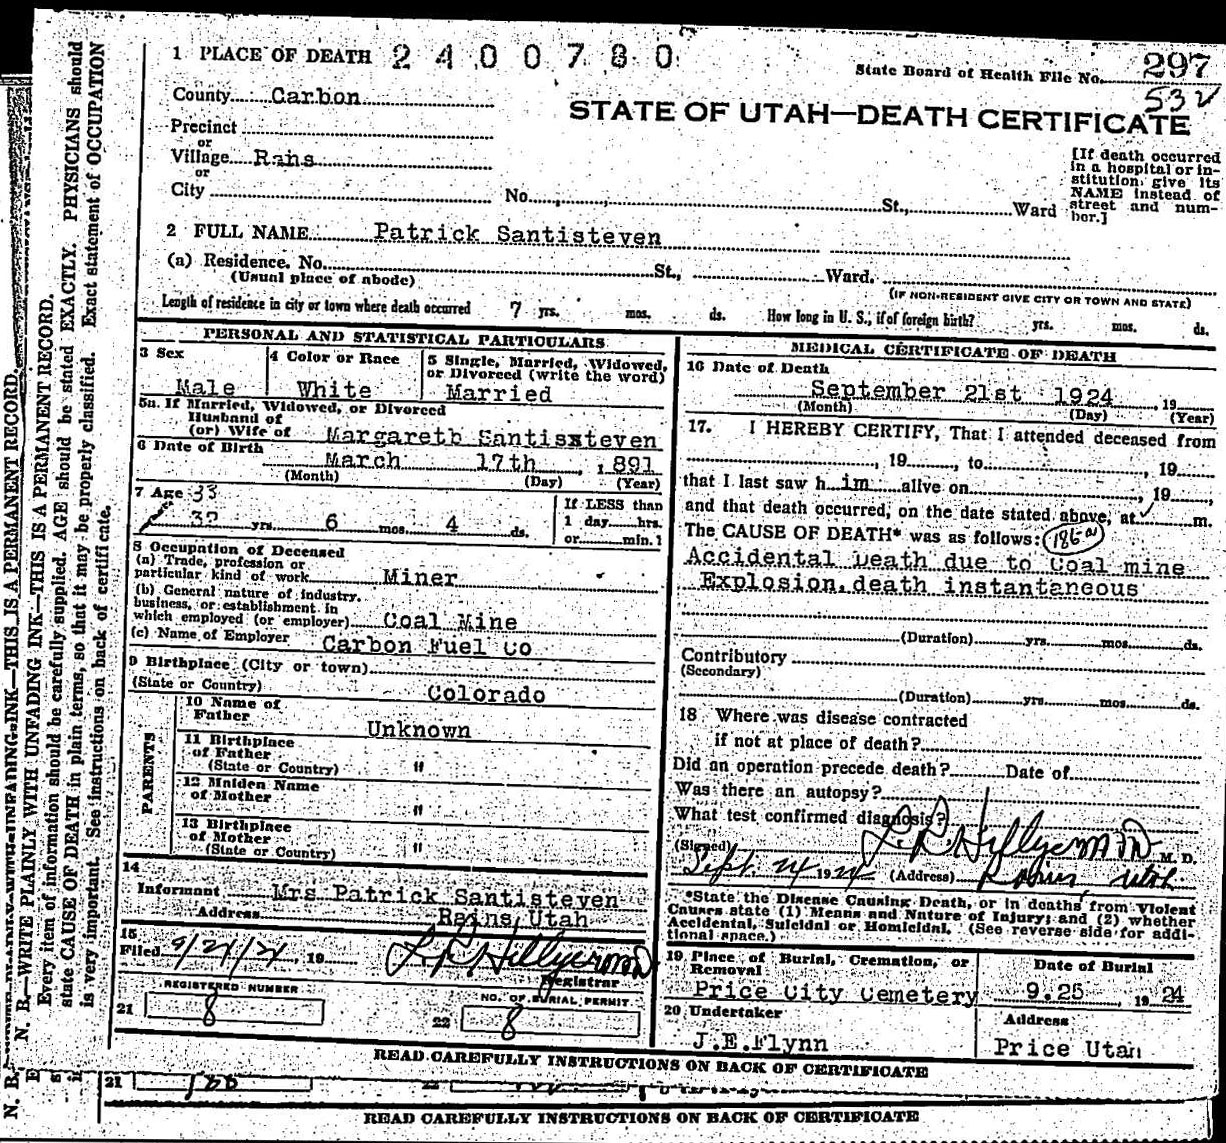 1 PLACE OF DEATH 2400780
State Board of Health File No. 297
532
County Carbon
STATE OF UTAH—DEATH CERTIFICATE
Precinct
or
Village Rans
or
City No. St., Ward
[If death occurred
in a hospital or in-
stitution give its
NAME instead of
street and num-
ber.]
2 FULL NAME Patrick Santisteven
(a) Residence. No. St., Ward.
(Usual place of abode)
(IF NON-RESIDENT GIVE CITY OR TOWN AND STATE)
Length of residence in city or town where death occurred 7 yrs. mos. ds. How long in U. S., if of foreign birth? yrs. mos. ds.
PERSONAL AND STATISTICAL PARTICULARS
3 Sex
Male
4 Color or Race
White
5 Single, Married, Widowed,
or Divorced (write the word)
Married
5a. If Married, Widowed, or Divorced
Husband of
(or) Wife of Margareth Santisxteven
6 Date of Birth
March 17th, 1891
(Month) (Day) (Year)
7 Age 33
32 yrs. 6 mos. 4 ds.
If LESS than
1 day hrs.
or min.?
8 Occupation of Deceased
(a) Trade, profession or
particular kind of work Miner
(b) General nature of industry,
business, or establishment in
which employed (or employer) Coal Mine
(c) Name of Employer Carbon Fuel Co
9 Birthplace (City or town)
(State or Country) Colorado
PARENTS
10 Name of
Father Unknown
11 Birthplace
of Father
(State or Country) "
12 Maiden Name
of Mother "
13 Birthplace
of Mother
(State or Country) "
14
Informant Mrs Patrick Santisteven
Address Rains Utah
15
Filed 9/21/24, 19 L R Hillyer MD
Registrar
REGISTERED NUMBER
21 8
NO. OF BURIAL PERMIT
22 8
MEDICAL CERTIFICATE OF DEATH
16 Date of Death
September 21st 1924, 19
(Month) (Day) (Year)
17. I HEREBY CERTIFY, That I attended deceased from
, 19, to, 19
that I last saw him alive on, 19,
and that death occurred, on the date stated above, at m.
The CAUSE OF DEATH* was as follows:
Accidental Death due to Coal mine
Explosion, death instantaneous
(Duration) yrs. mos. ds.
Contributory
(Secondary)
(Duration) yrs. mos. ds.
18 Where was disease contracted
if not at place of death?
Did an operation precede death? Date of
Was there an autopsy?
What test confirmed diagnosis?
(Signed) L. R. Hillyer MD M. D.
Sept. 24 1924 (Address) Rains, Utah
*State the Disease Causing Death, or in deaths from Violent
Causes state (1) Means and Nature of Injury; and (2) whether
Accidental, Suicidal or Homicidal. (See reverse side for addi-
tional space.)
19 Place of Burial, Cremation, or
Removal
Price City Cemetery
Date of Burial
9.25 1924
20 Undertaker
J.E.Flynn
Address
Price Utah
READ CAREFULLY INSTRUCTIONS ON BACK OF CERTIFICATE
21 22
READ CAREFULLY INSTRUCTIONS ON BACK OF CERTIFICATE
N. B.—WRITE PLAINLY WITH UNFADING INK—THIS IS A PERMANENT RECORD.
Every item of information should be carefully supplied. AGE should be stated EXACTLY. PHYSICIANS should
state CAUSE OF DEATH in plain terms, so that it may be properly classified. Exact statement of OCCUPATION
is very important. See instructions on back of certificate.